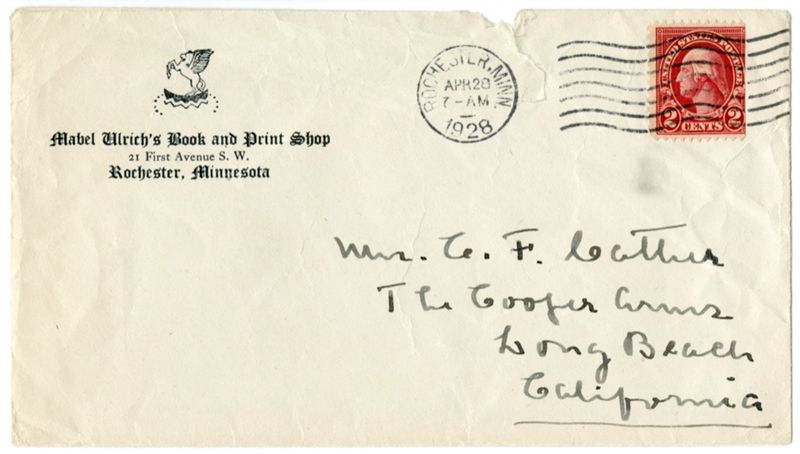 Mabel Ulrich's Book and Print Shop
21 First Avenue S. W.
Rochester, Minnesota
ROCHESTER, MINN.
APR 28
7-AM
1928
UNITED STATES POSTAGE
2 CENTS 2
Mrs. C. F. Cather
The Cooper Arms
Long Beach
California